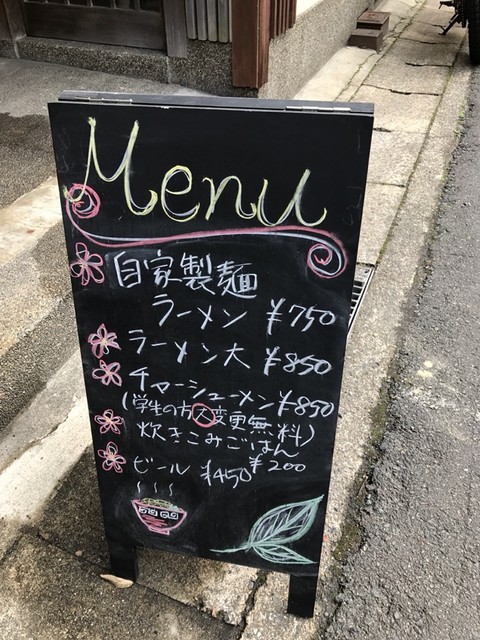 Menu
自家製麺
ラーメン ¥750
ラーメン大 ¥850
チャーシューメン ¥850
(学生の方大変更無料)
炊きこみごはん
¥200
ビール ¥450